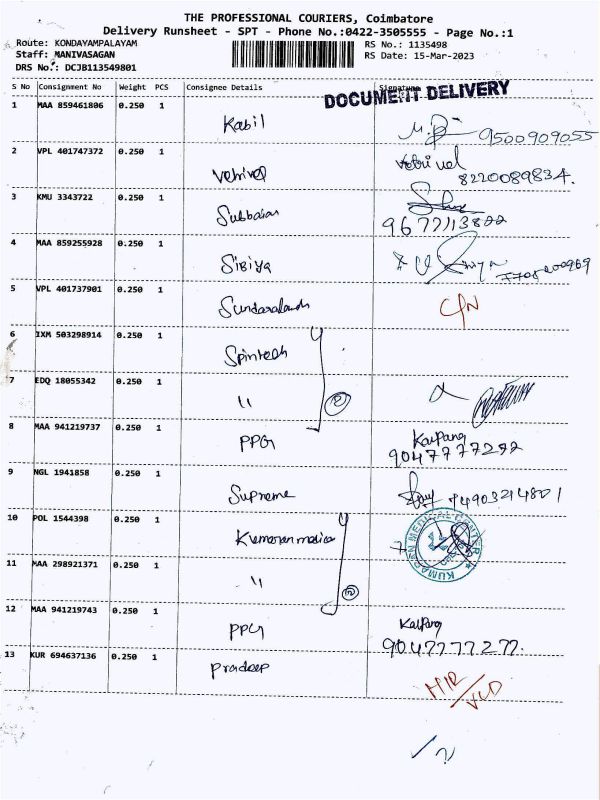 THE PROFESSIONAL COURIERS, Coimbatore
Delivery Runsheet - SPT - Phone No.:0422-3505555 - Page No.:1
Route: KONDAYAMPALAYAM
RS No.: 1135498
Staff: MANIVASAGAN
RS Date: 15-Mar-2023
DRS No.: DCJB113549801
S No Consignment No Weight PCS Consignee Details Signature
DOCUMENT DELIVERY
1 MAA 859461806 0.250 1 Kabil 9500909055
2 VPL 401747372 0.250 1 Vetrivel Vetrivel
8220089834.
3 KMU 3343722 0.250 1 Subbaian
9677113822
4 MAA 859255928 0.250 1 Sibiya
5 VPL 401737901 0.250 1 C/N
6 IXM 503298914 0.250 1 Spintech
7 EDQ 18055342 0.250 1 〃 2
8 MAA 941219737 0.250 1 PPG
9047777292
9 NGL 1941858 0.250 1 Supreme 74903214801
10 POL 1544398 0.250 1
KUMARAN MEDICAL CENTER
11 MAA 298921371 0.250 1 〃 2
12 MAA 941219743 0.250 1 PPG
9047777277.
13 KUR 694637136 0.250 1 Pradeep